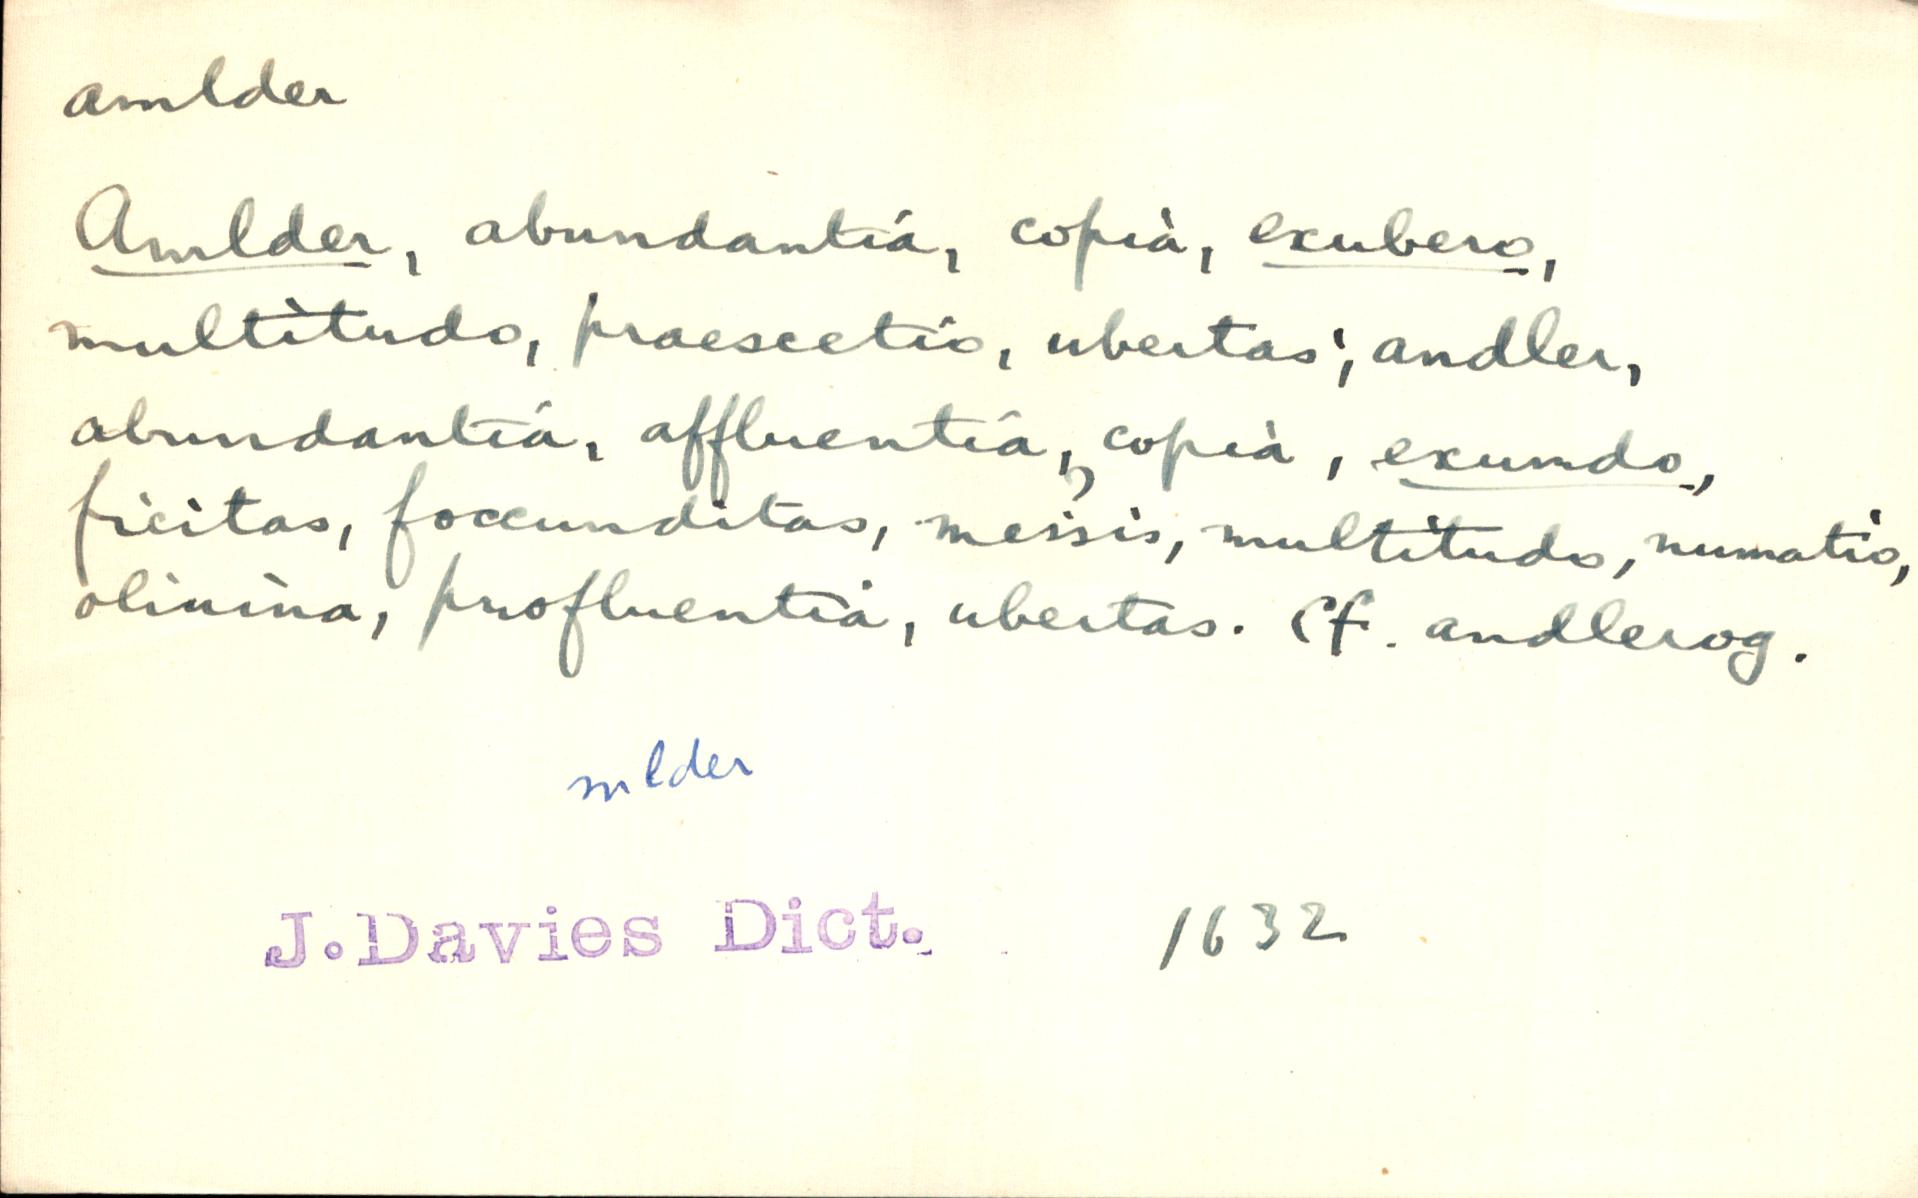 amlder
Amlder, abundantia, copia, exubero,
multitudo, praescetio, ubertas; amdler,
abundantia, affluentia, copia, exumdo,
foccunditas, messis, multitudo, numatio,
profluentia, ubertas. Cf. amdlerog.
mlder
J.Davies Dict. 1632